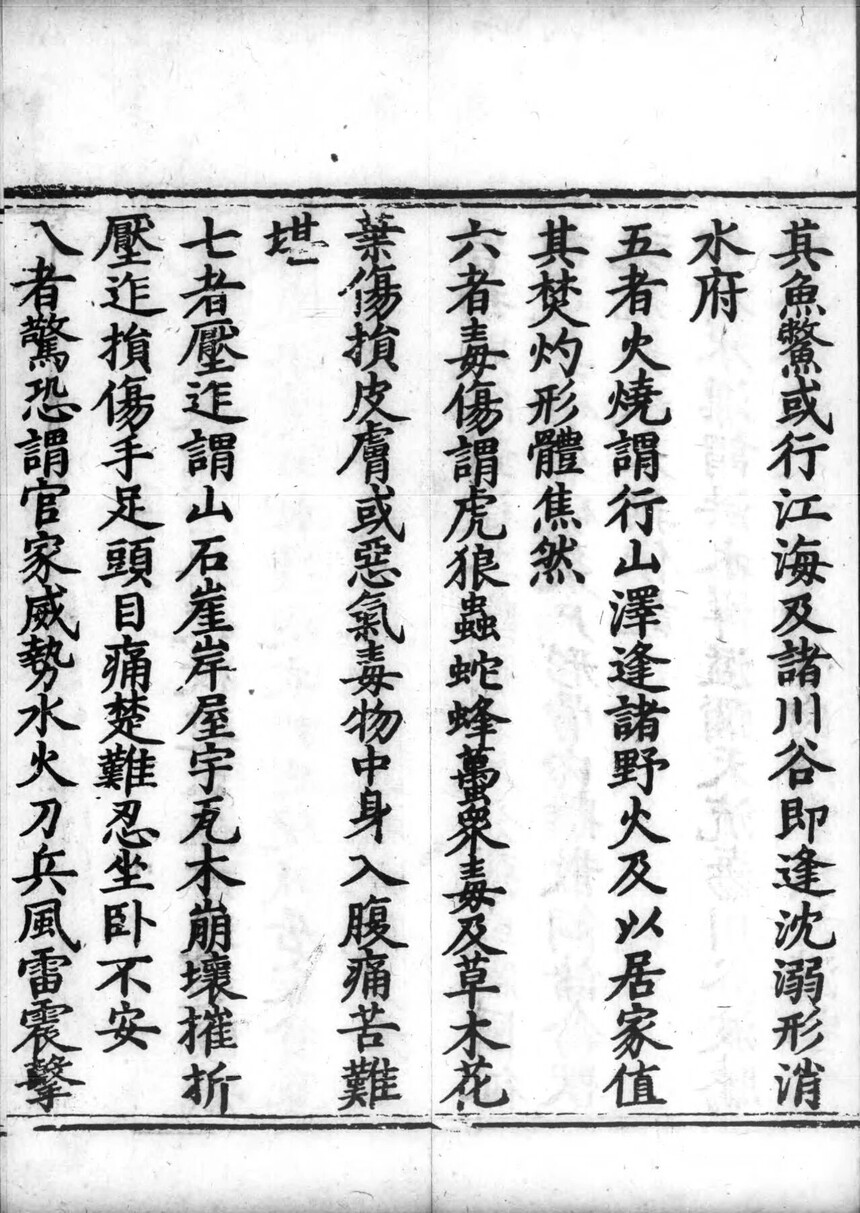 其魚鱉或行江海及諸川谷即逢沈溺形消
水府
五者火燒謂行山澤逢諸野火及以居家值
其焚灼形體焦然
六者毒傷謂虎狼蟲蛇蜂蠆眾毒及草木花
葉傷損皮膚或惡氣毒物中身入腹痛苦難
堪
七者壓迮謂山石崖岸屋宇瓦木崩壞摧折
壓迮損傷手足頭目痛楚難忍坐卧不安
八者驚恐謂官家威勢水火刀兵風雷震擊